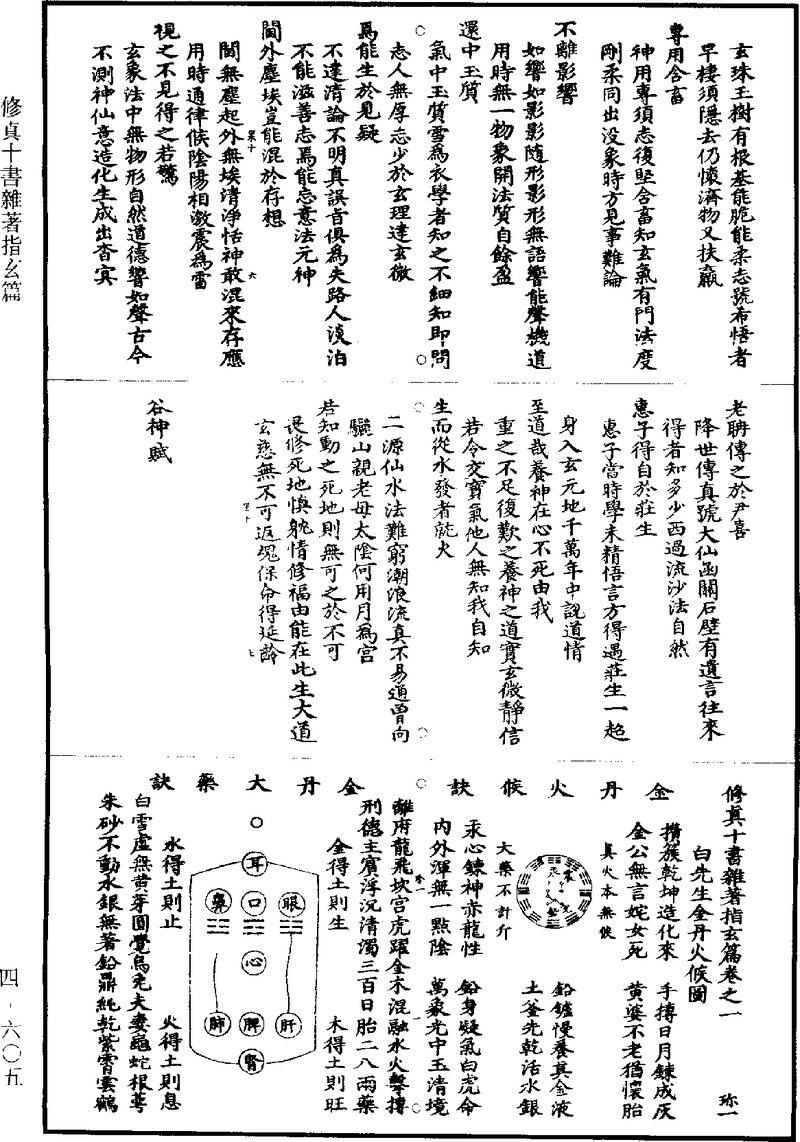 修真十書雜著指玄篇
四-六〇五
玄珠玉樹有根基能脆能柔志號希悟者
早棲須隱去仍懷濟物又扶羸
專用含畜
神用專須志復堅含畜知玄氣有門法度
剛柔同出没象時方見事難論
不離影響
如響如影影隨形影形無語響能聲機道
用時無一物象開法質自餘盈
還中玉質
氣中玉質雪為衣學者知之不細知即問
志人無厚志少於玄理達玄微
焉能生於見疑
不達清論不明真誤肯俱為失路人淡泊
不能滋善志焉能忘意法元神
閫外塵埃豈能混於存想
閫無塵起外無埃清淨恬神敢混來存應
用時通律候陰陽相激震為雷
視之不見得之若驚
玄象法中無物形自然道德響如聲古今
不測神仙意造化生成出杳冥
老聃傳之於尹喜
降世傳真號大仙函關石壁有遺言往來
得者知多少西過流沙法自然
惠子得自於莊生
惠子當時學未精悟言方得遇莊生一起
身入玄元地千萬年中說道情
至道哉養神在心不死由我
重之不足復歎之養神之道實玄微靜信
若令交寶氣他人無知我自知
生而從水發者就火
二源仙水法難窮潮浪流真不易通曾向
驪山親老母太陰何用月為宮
若知動之死地則無可之於不可
誤修死地慎躭情修福由能在此生大道
玄慈無不可返魂保命得延齡
谷神賦
修真十書雜著指玄篇卷之一 珎一
白先生金丹火候圖
攢簇乾坤造化來 手摶日月鍊成灰
金公無言姹女死 黃婆不老猶懷胎
金丹火候訣
真火本無候
大藥不計斤
鉛鑪慢養真金液
土釜先乾活水銀
汞心鍊神赤龍性 鉛身凝氣白虎命
內外渾無一點陰 萬象光中玉清境
離府龍飛坎宮虎躍金木混融水火擊摶
刑德主賓浮沉清濁三百日胎二八兩藥
金丹大藥訣
金得土則生 木得土則旺
耳
眼
口
鼻
心
肝
脾
肺
腎
水得土則止 火得土則息
白雪虛無黃芽圓覺烏兔夫妻龜蛇根萼
朱砂不動水銀無著鉛鼎純乾紫霄雲鶴